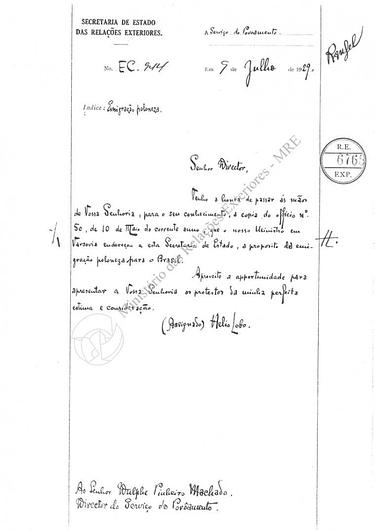 SECRETARIA DE ESTADO
DAS RELAÇÕES EXTERIORES.
A Serviço do Povoamento.
No. EC. 9
Em 9 de Julho de 1929.
Rangel
Indice: Emigração poloneza.
R.E.
6765
EXP.
Senhor Director,
Tenho a honra de passar ás mãos
de Vossa Senhoria, para o seu conhecimento, a copia do officio nº
50, de 10 de Maio do corrente anno, que o nosso Ministro em
Varsovia endereçou a esta Secretaria de Estado, a proposito da emi-
gração poloneza para o Brasil.
Aproveito a opportunidade para
apresentar a Vossa Senhoria os protestos da minha perfeita
estima e consideração.
(Assignado) Helio Lobo.
Ministério das Relações Exteriores - MRE
Ao Senhor Dulphe Pinheiro Machado.
Director do Serviço do Povoamento.